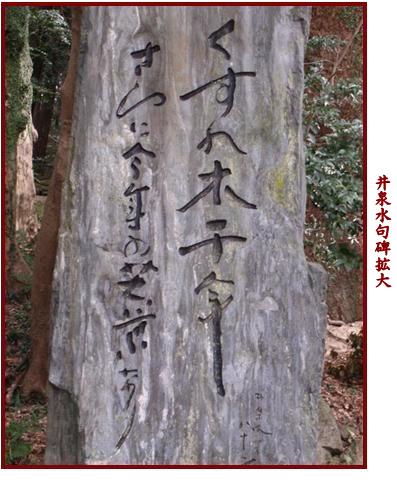 くすの木千年
さらに今年の若葉なり
井泉水句碑拡大